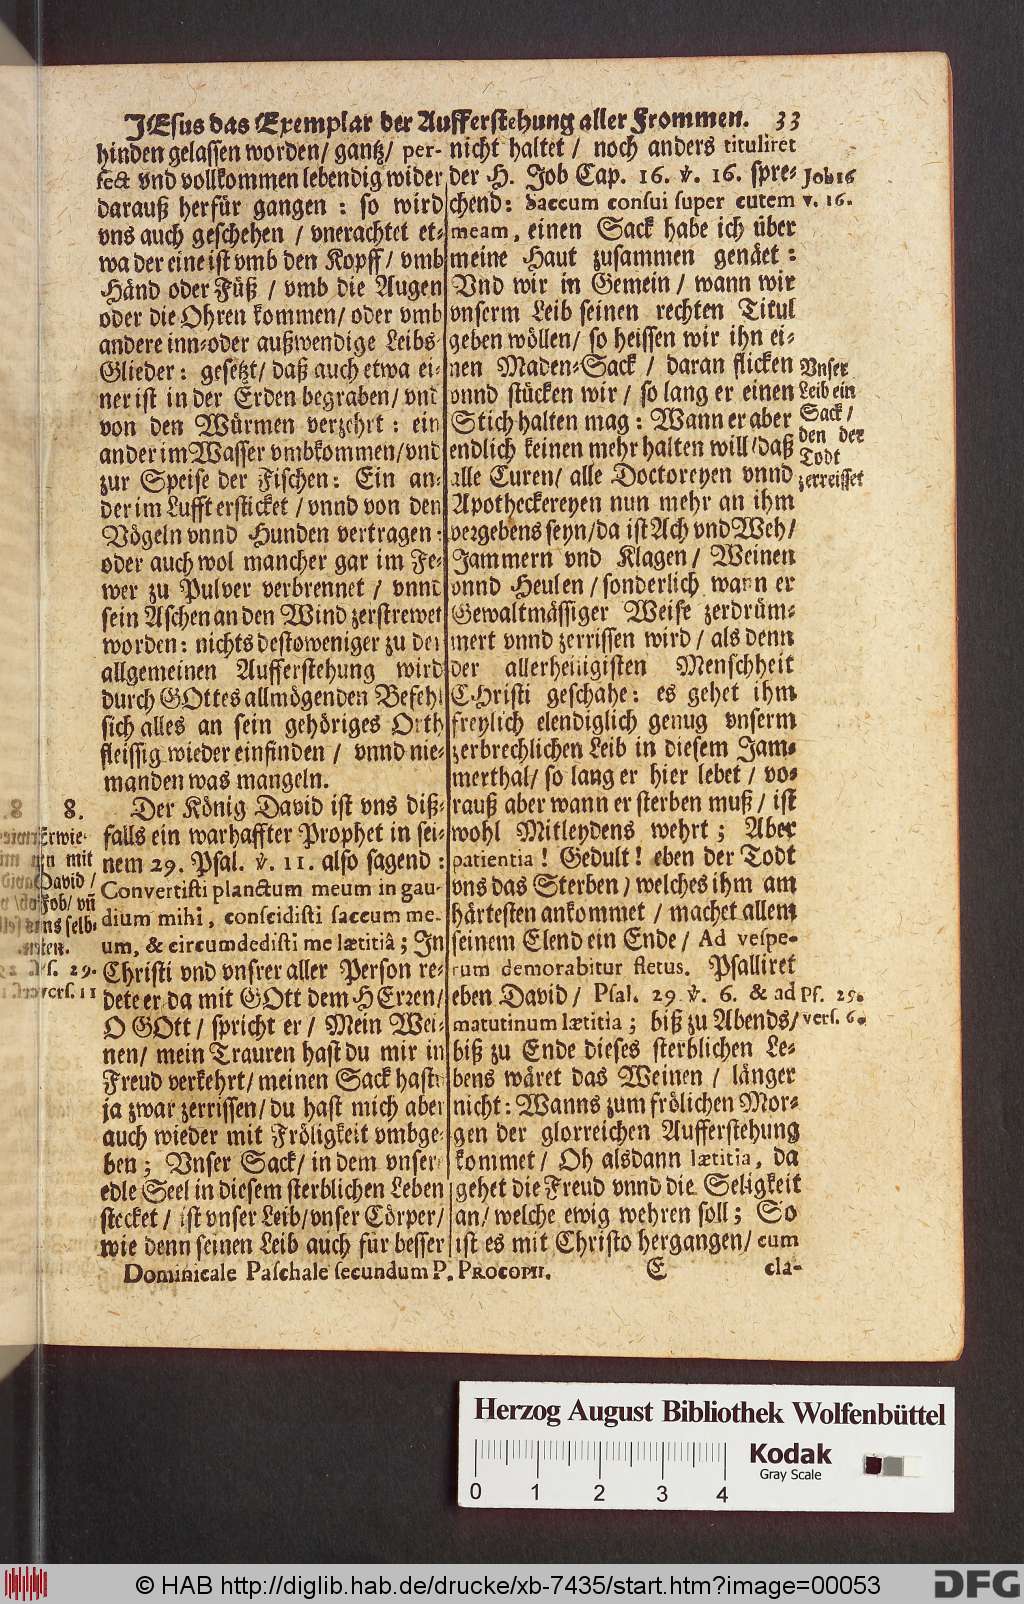 JEsus das Exemplar der Aufferstehung aller Frommen. 33
hinden gelassen worden/ gantz/ per-
fect vnd vollkommen lebendig wider
darauß herfür gangen: so wird
vns auch geschehen / vnerachtet et-
wa der eine ist vmb den Kopff/ vmb
Händ oder Füß / vmb die Augen
oder die Ohren kommen/ oder vmb
andere inn-oder außwendige Leibs
Glieder: gesetzt/ daß auch etwa ei-
ner ist in der Erden begraben/ vnd
von den Würmen verzehrt: ein
ander im Wasser vmbkommen/ vnd
zur Speise der Fischen: Ein an-
der im Lufft ersticket / vnnd von den
Vögeln vnnd Hunden vertragen:
oder auch wol mancher gar im Fe-
wer zu Pulver verbrennet / vnnd
sein Aschen an den Wind zerstrewet
worden: nichts destoweniger zu der
allgemeinen Aufferstehung wird
durch GOttes allmögenden Befehl
sich alles an sein gehöriges Orth
fleissig wieder einfinden / vnnd nie-
manden was mangeln.
8.
Erwie-
mit
David /
Job/ vñ
vns selb-
sten.
Ps. 29.
vers. 11
Der König David ist vns diß-
falls ein warhaffter Prophet in sei-
nem 29. Psal. v. 11. also sagend:
Convertisti planctum meum in gau-
dium mihi, conscidisti saccum me-
um, & circumdedisti me lætitiâ; In
Christi vnd vnsrer aller Person re-
dete er da mit GOtt dem HErren/
O GOtt / spricht er / Mein Wei-
nen/ mein Trauren hast du mir in
Freud verkehrt/ meinen Sack hastu
ja zwar zerrissen/ du hast mich aber
auch wieder mit Fröligkeit vmbge-
ben; Vnser Sack/ in dem vnser
edle Seel in diesem sterblichen Leben
stecket / ist vnser Leib/ vnser Cörper/
wie denn seinen Leib auch für besser
nicht haltet / noch anders tituliret
der H. Job Cap. 16. v. 16. spre-
chend: Saccum consui super cutem
meam, einen Sack habe ich über
meine Haut zusammen genäet:
Vnd wir in Gemein / wann wir
vnserm Leib seinen rechten Titul
geben wöllen/ so heissen wir ihn ei-
nen Maden-Sack / daran flicken
vnnd stücken wir / so lang er einen
Stich halten mag: Wann er aber
endlich keinen mehr halten will/ daß
alle Curen/ alle Doctoreyen vnnd
Apotheckereyen nun mehr an ihm
vergebens seyn/ da ist Ach vnd Weh/
Jammern vnd Klagen / Weinen
vnnd Heulen / sonderlich wann er
Gewaltmässiger Weise zerdrüm-
mert vnnd zerrissen wird / als denn
der allerheiligisten Menschheit
CHristi geschahe: es gehet ihm
freylich elendiglich genug vnserm
zerbrechlichen Leib in diesem Jam-
merthal/ so lang er hier lebet / vo-
rauß aber wann er sterben muß / ist
wohl Mitleydens wehrt; Aber
patientia! Gedult! eben der Todt
vns das Sterben / welches ihm am
härtesten ankommet / machet allem
seinem Elend ein Ende / Ad vespe-
rum demorabitur fletus. Psalliret
eben David / Psal. 29 v. 6. & ad
matutinum lætitia; biß zu Abends/
biß zu Ende dieses sterblichen Le-
bens wäret das Weinen / länger
nicht: Wanns zum frölichen Mor-
gen der glorreichen Aufferstehung
kommet / Oh alsdann lætitia, da
gehet die Freud vnnd die Seligkeit
an/ welche ewig wehren soll; So
ist es mit Christo hergangen/ cum
Job 16
v. 16.
Vnser
Leib ein
Sack /
den der
Todt
zerreisset
Ps. 29.
vers. 6.
Dominicale Paschale secundum P. PROCOPII.
E
cla-
Herzog August Bibliothek Wolfenbüttel
0 1 2 3 4
Kodak
Gray Scale
© HAB http://diglib.hab.de/drucke/xb-7435/start.htm?image=00053
DFG